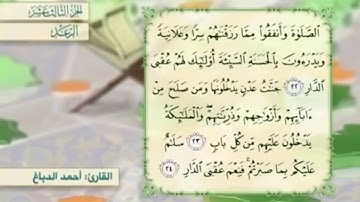 الجزء الثالث عشر
الرعد
ٱلصَّلَوٰةَ وَأَنفَقُوا۟ مِمَّا رَزَقْنَٰهُمْ سِرًّا وَعَلَانِيَةً
وَيَدْرَءُونَ بِٱلْحَسَنَةِ ٱلسَّيِّئَةَ أُو۟لَٰٓئِكَ لَهُمْ عُقْبَى
ٱلدَّارِ ٢٢ جَنَّٰتُ عَدْنٍ يَدْخُلُونَهَا وَمَن صَلَحَ مِنْ
ءَابَآئِهِمْ وَأَزْوَٰجِهِمْ وَذُرِّيَّٰتِهِمْ ۖ وَٱلْمَلَٰٓئِكَةُ
يَدْخُلُونَ عَلَيْهِم مِّن كُلِّ بَابٍ ٢٣ سَلَٰمٌ
عَلَيْكُم بِمَا صَبَرْتُمْ ۚ فَنِعْمَ عُقْبَى ٱلدَّارِ ٢٤
القارئ: أحمد الدباغ